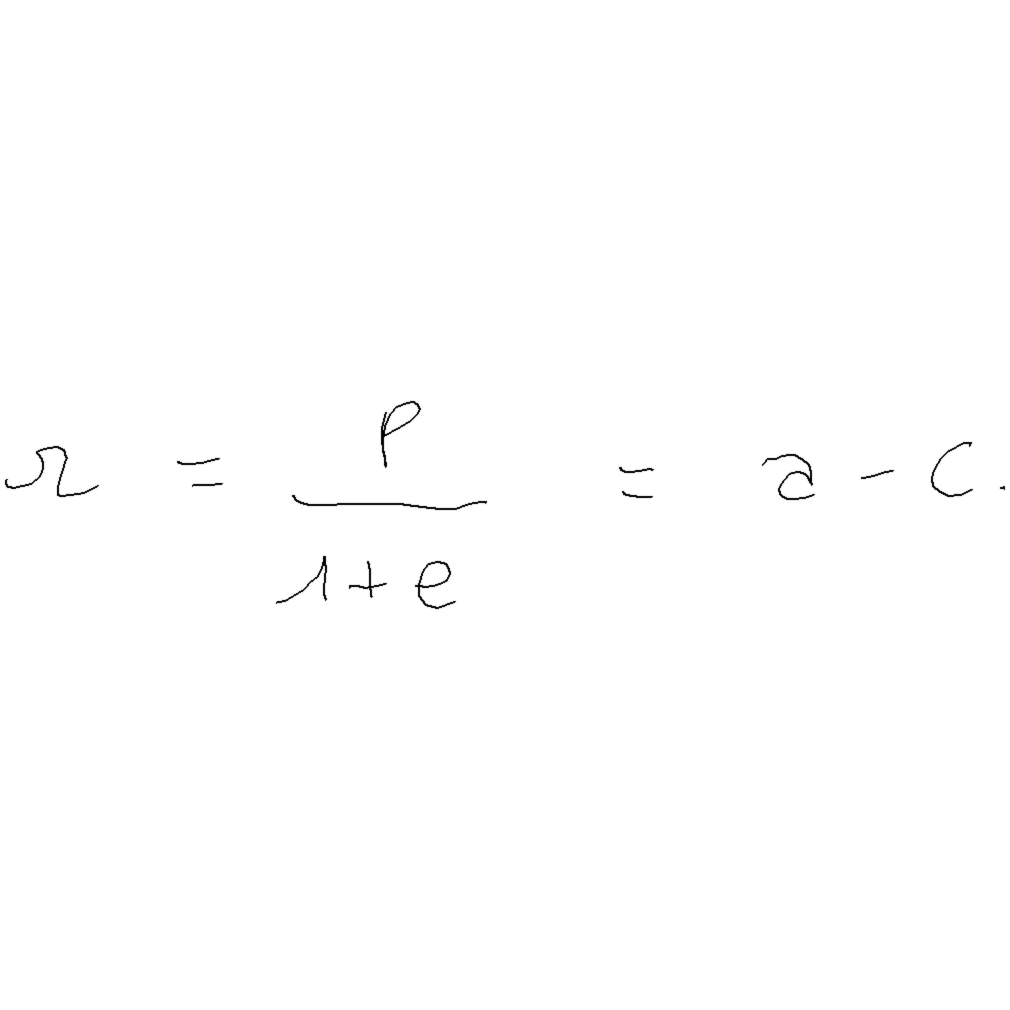 r = \frac{p}{1+e} = a - c.